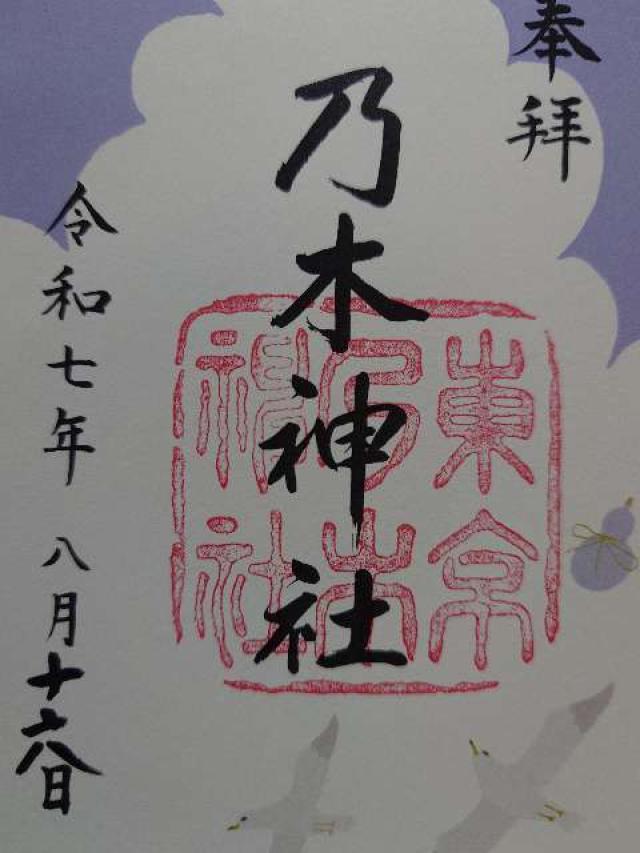 奉拝
乃木神社
東京
乃木
神社
令和七年 八月十六日